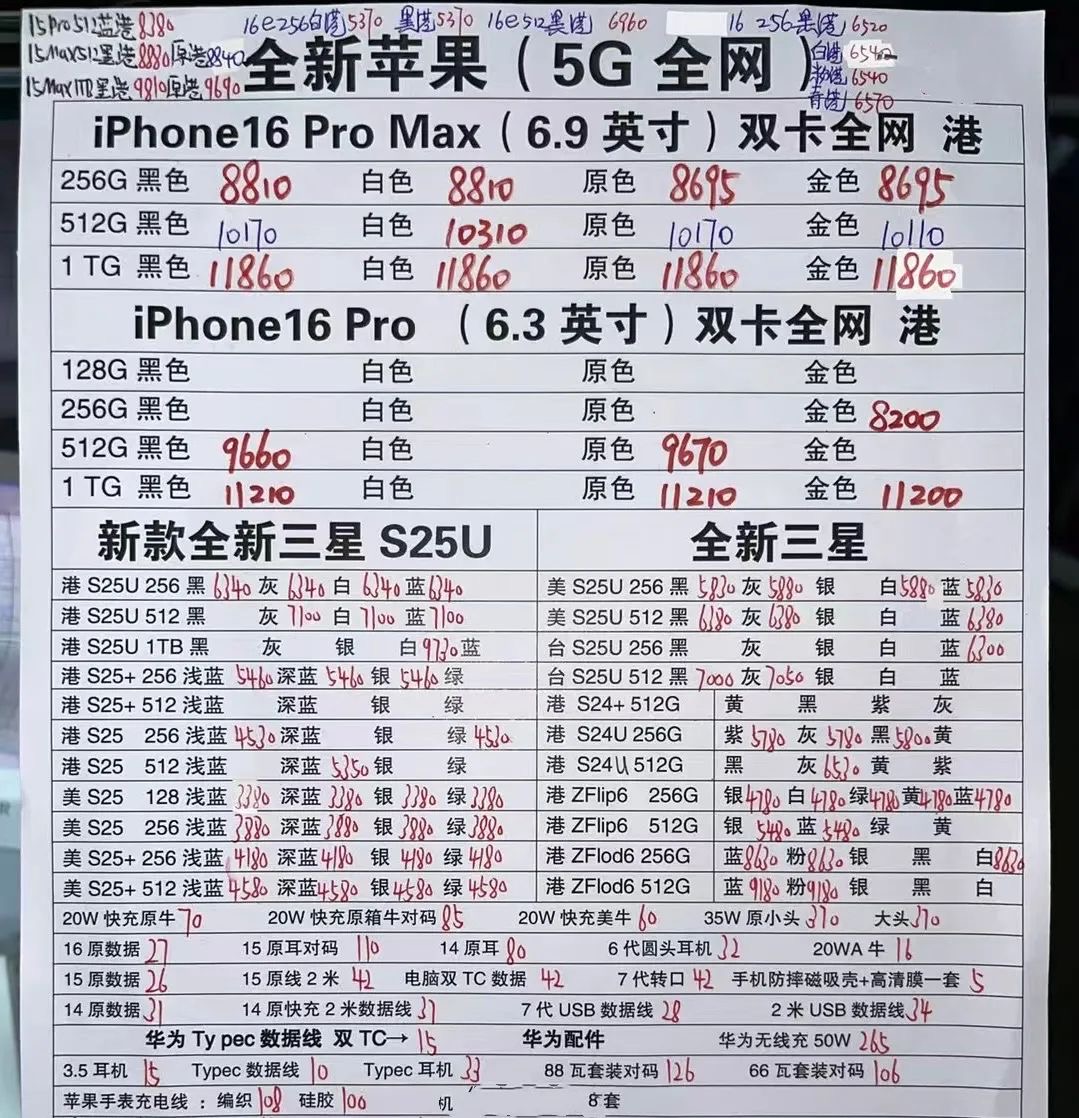 15Pro512蓝港8380 16e256白港5370 黑港5370 16e512黑港 6960 16 256黑港 6520
15Max512黑港8880原港8840 白港 6540
15Max1TB黑港9810原港9690 粉港 6540
青港 6570
全新苹果（5G 全网）
iPhone16 Pro Max（6.9 英寸）双卡全网 港
256G 黑色 8810 白色 8810 原色 8695 金色 8695
512G 黑色 10170 白色 10310 原色 10170 金色 10110
1 TG 黑色 11860 白色 11860 原色 11860 金色 11860
iPhone16 Pro （6.3 英寸）双卡全网 港
128G 黑色 白色 原色 金色
256G 黑色 白色 原色 金色 8200
512G 黑色 9660 白色 原色 9670 金色
1 TG 黑色 11210 白色 原色 11210 金色 11200
新款全新三星 S25U 全新三星
港 S25U 256 黑 6340 灰 6340 白 6340 蓝 6340 美 S25U 256 黑 5830 灰 5880 银 白 5880 蓝 5830
港 S25U 512 黑 灰 7100 白 7100 蓝 7100 美 S25U 512 黑 6380 灰 6380 银 白 蓝 6380
港 S25U 1TB 黑 灰 银 白 9730 蓝 台 S25U 256 黑 灰 银 白 蓝 6300
港 S25+ 256 浅蓝 5460 深蓝 5460 银 5460 绿 台 S25U 512 黑 7000 灰 7050 银 白 蓝
港 S25+ 512 浅蓝 深蓝 银 绿 港 S24+ 512G 黄 黑 紫 灰
港 S25 256 浅蓝 4530 深蓝 银 绿 4530 港 S24U 256G 紫 5780 灰 5780 黑 5800 黄
港 S25 512 浅蓝 深蓝 5350 银 绿 港 S24U 512G 黑 灰 6530 黄 紫
美 S25 128 浅蓝 3380 深蓝 3380 银 3380 绿 3380 港 ZFlip6 256G 银 4780 白 4780 绿 4780 黄 4780 蓝 4780
美 S25 256 浅蓝 3880 深蓝 3880 银 3880 绿 3880 港 ZFlip6 512G 银 5480 蓝 5480 绿 黄
美 S25+ 256 浅蓝 4180 深蓝 4180 银 4180 绿 4180 港 ZFlod6 256G 蓝 8630 粉 8630 银 黑 白 8630
美 S25+ 512 浅蓝 4580 深蓝 4580 银 4580 绿 4580 港 ZFlod6 512G 蓝 9180 粉 9180 银 黑 白
20W 快充原牛 70 20W 快充原箱牛对码 85 20W 快充美牛 60 35W 原小头 370 大头 370
16 原数据 27 15 原耳对码 110 14 原耳 80 6 代圆头耳机 32 20WA 牛 16
15 原数据 26 15 原线 2 米 42 电脑双 TC 数据 42 7 代转口 42 手机防摔磁吸壳+高清膜一套 5
14 原数据 31 14 原快充 2 米数据线 37 7 代 USB 数据线 28 2 米 USB 数据线 34
华为 Ty pec 数据线 双 TC→ 15 华为配件 华为无线充 50W 265
3.5 耳机 15 Typec 数据线 10 Typec 耳机 33 88 瓦套装对码 126 66 瓦套装对码 106
苹果手表充电线 ：编织 108 硅胶 100 机 8套